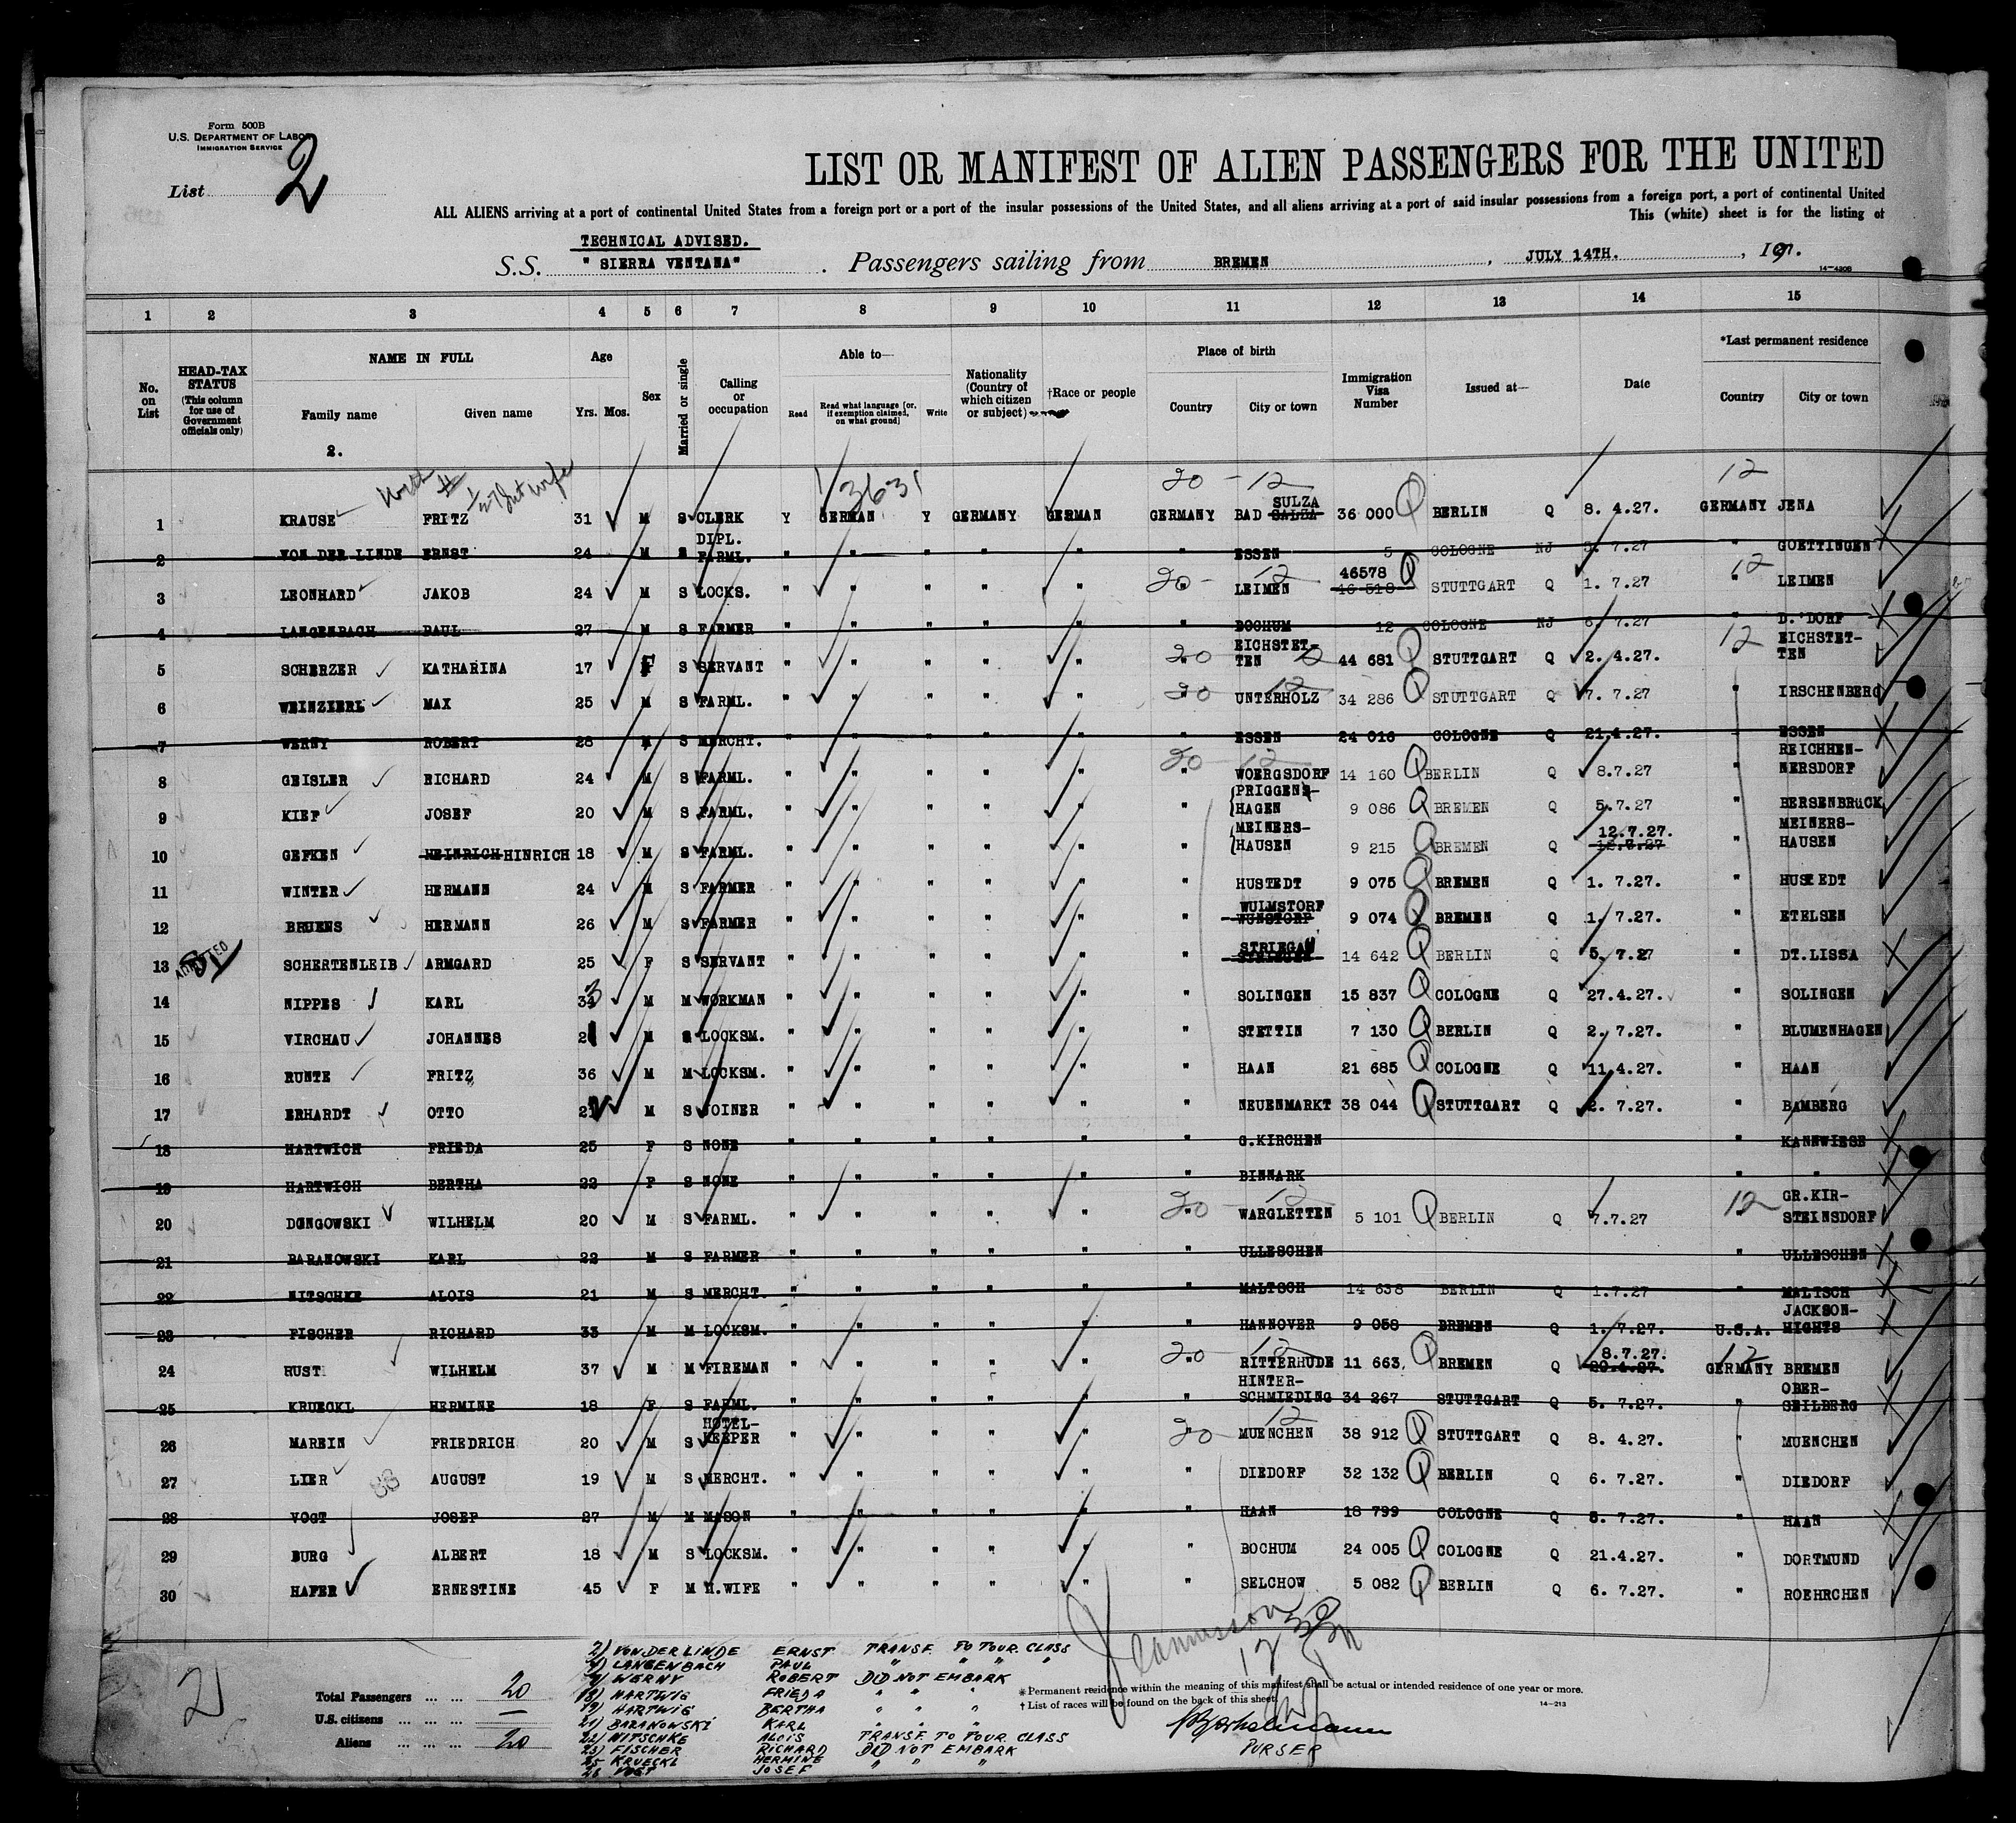 Form 500B
U.S. DEPARTMENT OF LABOR
IMMIGRATION SERVICE
List 2
LIST OR MANIFEST OF ALIEN PASSENGERS FOR THE UNITED
ALL ALIENS arriving at a port of continental United States from a foreign port or a port of the insular possessions of the United States, and all aliens arriving at a port of said insular possessions from a foreign port, a port of continental United
This (white) sheet is for the listing of
TECHNICAL ADVISED.
S.S. "SIERRA VENTANA" . Passengers sailing from BREMEN , JULY 14TH. , 19
14-4206
1 2 3 4 5 6 7 8 9 10 11 12 13 14 15
No. on List
HEAD-TAX STATUS (This column for use of Government officials only)
NAME IN FULL Family name Given name
2.
Age Yrs. Mos.
Sex
Married or single
Calling or occupation
Able to— Read Read what language [or, if exemption claimed, on what ground] Write
Nationality (Country of which citizen or subject)
†Race or people
Place of birth Country City or town
Immigration Visa Number
Issued at—
Date
*Last permanent residence Country City or town
3631
20 - 12 12
1 KRAUSE FRITZ 31 M S CLERK Y GERMAN Y GERMANY GERMAN GERMANY BAD SALZA SULZA 36 000 Q BERLIN Q 8. 4.27. GERMANY JENA
2 VON DER LINDE ERNST 24 M S DIPL. FARML. " " " " " " ESSEN 5 COLOGNE NJ 7.27 " GOETTINGEN
3 LEONHARD JAKOB 24 M S LOCKS. " " " " " 20 - 12 LEIMEN 46578 46 518 Q STUTTGART Q 1. 7.27 12 " LEIMEN
4 LANGENBACH PAUL 27 M S FARMER " " " " " " BOCHUM 12 COLOGNE NJ 6. 7.27 " D.'DORF
5 SCHERZER KATHARINA 17 F S SERVANT " " " " " 20 12 EICHSTETTEN 44 681 Q STUTTGART Q 2. 4.27. 12 " EICHSTETTEN
6 WEINZIERL MAX 25 M S FARML. " " " " " 20 12 UNTERHOLZ 34 286 Q STUTTGART Q 7. 7.27 " IRSCHENBERG
7 WERNY ROBERT 28 M S MERCHT. " " " " " " ESSEN 24 016 COLOGNE Q 21.4.27. " ESSEN
8 GEISLER RICHARD 24 M S FARML. " " " " " 20 - 12 WOERGSDORF 14 160 Q BERLIN Q 8.7.27 " REICHHENNERSDORF
9 KIEF JOSEF 20 M S FARML. " " " " " " PRIGGENHAGEN 9 086 Q BREMEN Q 5.7.27 " BERSENBRüCK
10 GEFKEN HEINRICH HINRICH 18 M S FARML. " " " " " " MEINERSHAUSEN 9 215 Q BREMEN Q 12.7.27. " MEINERSHAUSEN
11 WINTER HERMANN 24 M S FARMER " " " " " " HUSTEDT 9 075 Q BREMEN Q 1. 7.27. " HUSTEDT
12 BRUENS HERMANN 26 M S FARMER " " " " " " WULMSTORF WUNSTORF 9 074 Q BREMEN Q 1. 7.27. " ETELSEN
ADMITTED
13 SCHERTENLEIB ARMGARD 25 F S SERVANT " " " " " " STRIEGAU 14 642 Q BERLIN Q 5. 7.27 " DT.LISSA
14 NIPPES KARL M M WORKMAN " " " " " " SOLINGEN 15 837 Q COLOGNE Q 27.4.27. " SOLINGEN
15 VIRCHAU JOHANNES 21 M S LOCKSM. " " " " " " STETTIN 7 130 Q BERLIN Q 2. 7.27. " BLUMENHAGEN
16 RUNTE FRITZ 36 M M LOCKSM. " " " " " " HAAN 21 685 Q COLOGNE Q 11.4.27. " HAAN
17 ERHARDT OTTO M S JOINER " " " " " " NEUENMARKT 38 044 Q STUTTGART Q 2. 7.27. " BAMBERG
18 HARTWICH FRIEDA 25 F S NONE " " " " " " G.KIRCHEN " KANNWIESE
19 HARTWICH BERTHA 22 F S NONE " " " " " " BINNARK " "
20 DONGOWSKI WILHELM 20 M S FARML. " " " " " 20 12 WARGLETTEN 5 101 Q BERLIN Q 7.7.27 12 GR.KIRSTEINSDORF
21 BARANOWSKI KARL 22 M S FARMER " " " " " " ULLESCHEN " ULLESCHEN
22 NITSCHKE ALOIS 21 M S MERCHT. " " " " " " MALTSCH 14 638 BERLIN Q 1.7.27 " MALTSCH
23 FISCHER RICHARD 33 M M LOCKSM. " " " " " " HANNOVER 9 058 BREMEN Q 1. 7.27. U.S.A. JACKSON-HIGHTS
24 RUST WILHELM 37 M M FIREMAN " " " " " 20 - 12 RITTERHUDE 11 663 Q BREMEN Q 8.7.27. 20.4.27. 12 GERMANY BREMEN
25 KRUECKL HERMINE 18 F S FARML. " " " " " " HINTER-SCHMIEDING 34 267 STUTTGART Q 5. 7.27. " OBER-SEILBERG
26 MAREIN FRIEDRICH 20 M S HOTEL-KEEPER " " " " " 20 12 MUENCHEN 38 912 Q STUTTGART Q 8. 4.27. " MUENCHEN
27 LIER AUGUST 19 M S MERCHT. " " " " " " DIEDORF 32 132 Q BERLIN Q 6. 7.27. " DIEDORF
28 VOGT JOSEF 27 M M MASON " " " " " " HAAN 18 799 COLOGNE Q 5. 7.27. " HAAN
29 BURG ALBERT 18 M S LOCKSM. " " " " " " BOCHUM 24 005 Q COLOGNE Q 21.4.27. " DORTMUND
30 HAFER ERNESTINE 45 F M H.WIFE " " " " " " SELCHOW 5 082 Q BERLIN Q 6. 7.27. " ROEHRCHEN
2) VON DER LINDE ERNST TRANSF. TO TOUR. CLASS
4) LANGENBACH PAUL " " " "
7) WERNY ROBERT DID NOT EMBARK
18) HARTWIG FRIEDA " " "
19) HARTWIG BERTHA " " "
21) BARANOWSKI KARL " " "
22) NITSCHKE ALOIS TRANSF. TO TOUR. CLASS
23) FISCHER RICHARD DID NOT EMBARK
25 KRUECKL HERMINE " " "
28 VOGT JOSEF " " "
2
Total Passengers ... ... 20
U.S. citizens ... ... ... —
Aliens ... ... ... 20
*Permanent residence within the meaning of this manifest shall be actual or intended residence of one year or more.
† List of races will be found on the back of this sheet.
14-213
PURSER